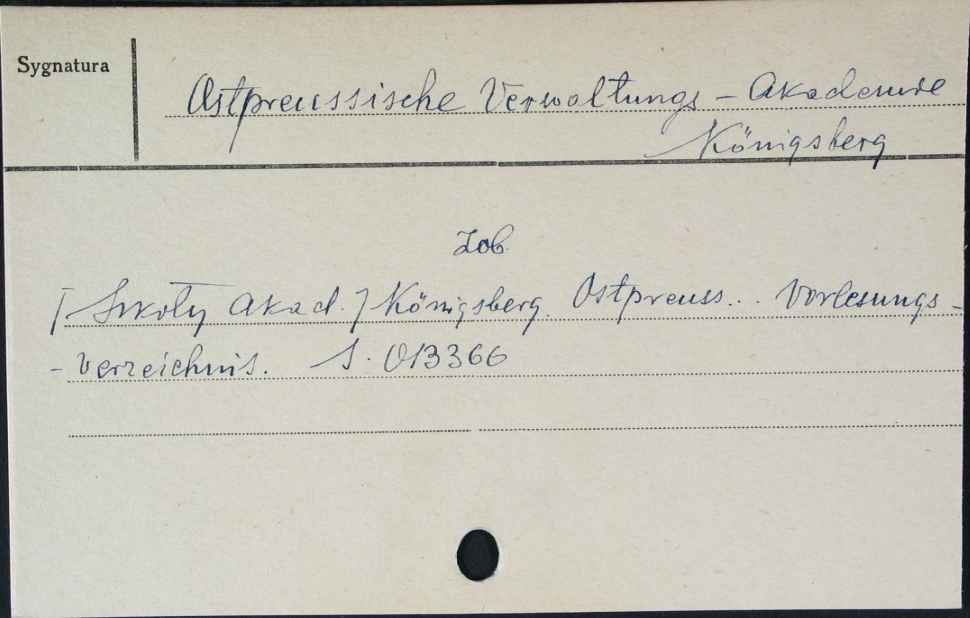 Sygnatura
Ostpreussische Verwaltungs - Akademie
Königsberg
Zob.
[Szkoły Akad.] Königsberg. Ostpreuss... Vorlesungs -
- verzeichnis. S. 013366